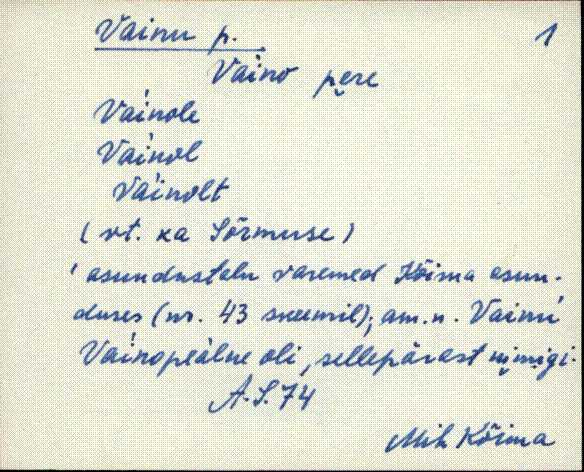 Vainu p. 1
Vaino pere
Vàinole
Vàinol
Vàinolt
(vt. ka Sõrmuse)
' asundustalu varemed Kõima asun-
duses (nr. 43 skeemil); am.n. Vainu
Vàinopeàlne oli, sellepärast nimigi.
A.S. 74
Mih Kõima